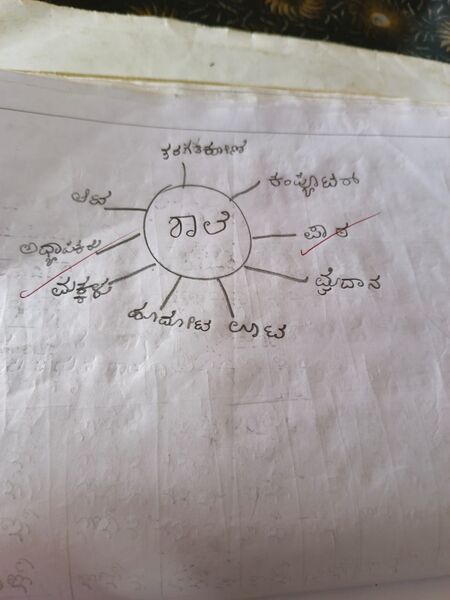 ತರಗತಿಕೋಣೆ
ಕಂಪ್ಯೂಟರ್
ಆಟ
ಶಾಲೆ
ಪಾಠ
ಅಧ್ಯಾಪಕರು
ಮಕ್ಕಳು
ಮೈದಾನ
ಹೂದೋಟ
ಊಟ